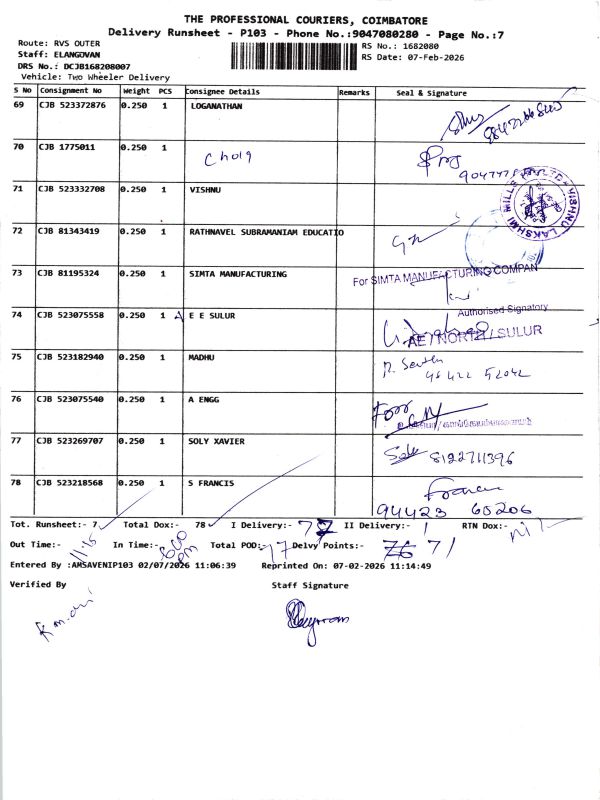 THE PROFESSIONAL COURIERS, COIMBATORE
Delivery Runsheet - P103 - Phone No.:9047080280 - Page No.:7
Route: RVS OUTER
Staff: ELANGOVAN
DRS No.: DCJB168208007
Vehicle: Two Wheeler Delivery
RS No.: 1682080
RS Date: 07-Feb-2026
S No Consignment No Weight PCS Consignee Details Remarks Seal & Signature
69 CJB 523372876 0.250 1 LOGANATHAN
70 CJB 1775011 0.250 1
71 CJB 523332708 0.250 1 VISHNU
LAKSHMI MILLS VISHNU
72 CJB 81343419 0.250 1 RATHNAVEL SUBRAMANIAM EDUCATIO
73 CJB 81195324 0.250 1 SIMTA MANUFACTURING
For SIMTA MANUFACTURING COMPAN
Authorised Signatory
74 CJB 523075558 0.250 1 A E E SULUR
AE / NORTH / SULUR
75 CJB 523182940 0.250 1 MADHU
76 CJB 523075540 0.250 1 A ENGG
77 CJB 523269707 0.250 1 SOLY XAVIER
8122711396
78 CJB 523218568 0.250 1 S FRANCIS
94423 60206
Tot. Runsheet:- 7 Total Dox:- 78 I Delivery:- II Delivery:- 1 RTN Dox:- nil
Out Time:- 11:45 In Time:- 6:00 PM Total POD:- 77 Delvy Points:- 71
Entered By :AMSAVENIP103 02/07/2026 11:06:39 Reprinted On: 07-02-2026 11:14:49
Verified By Staff Signature